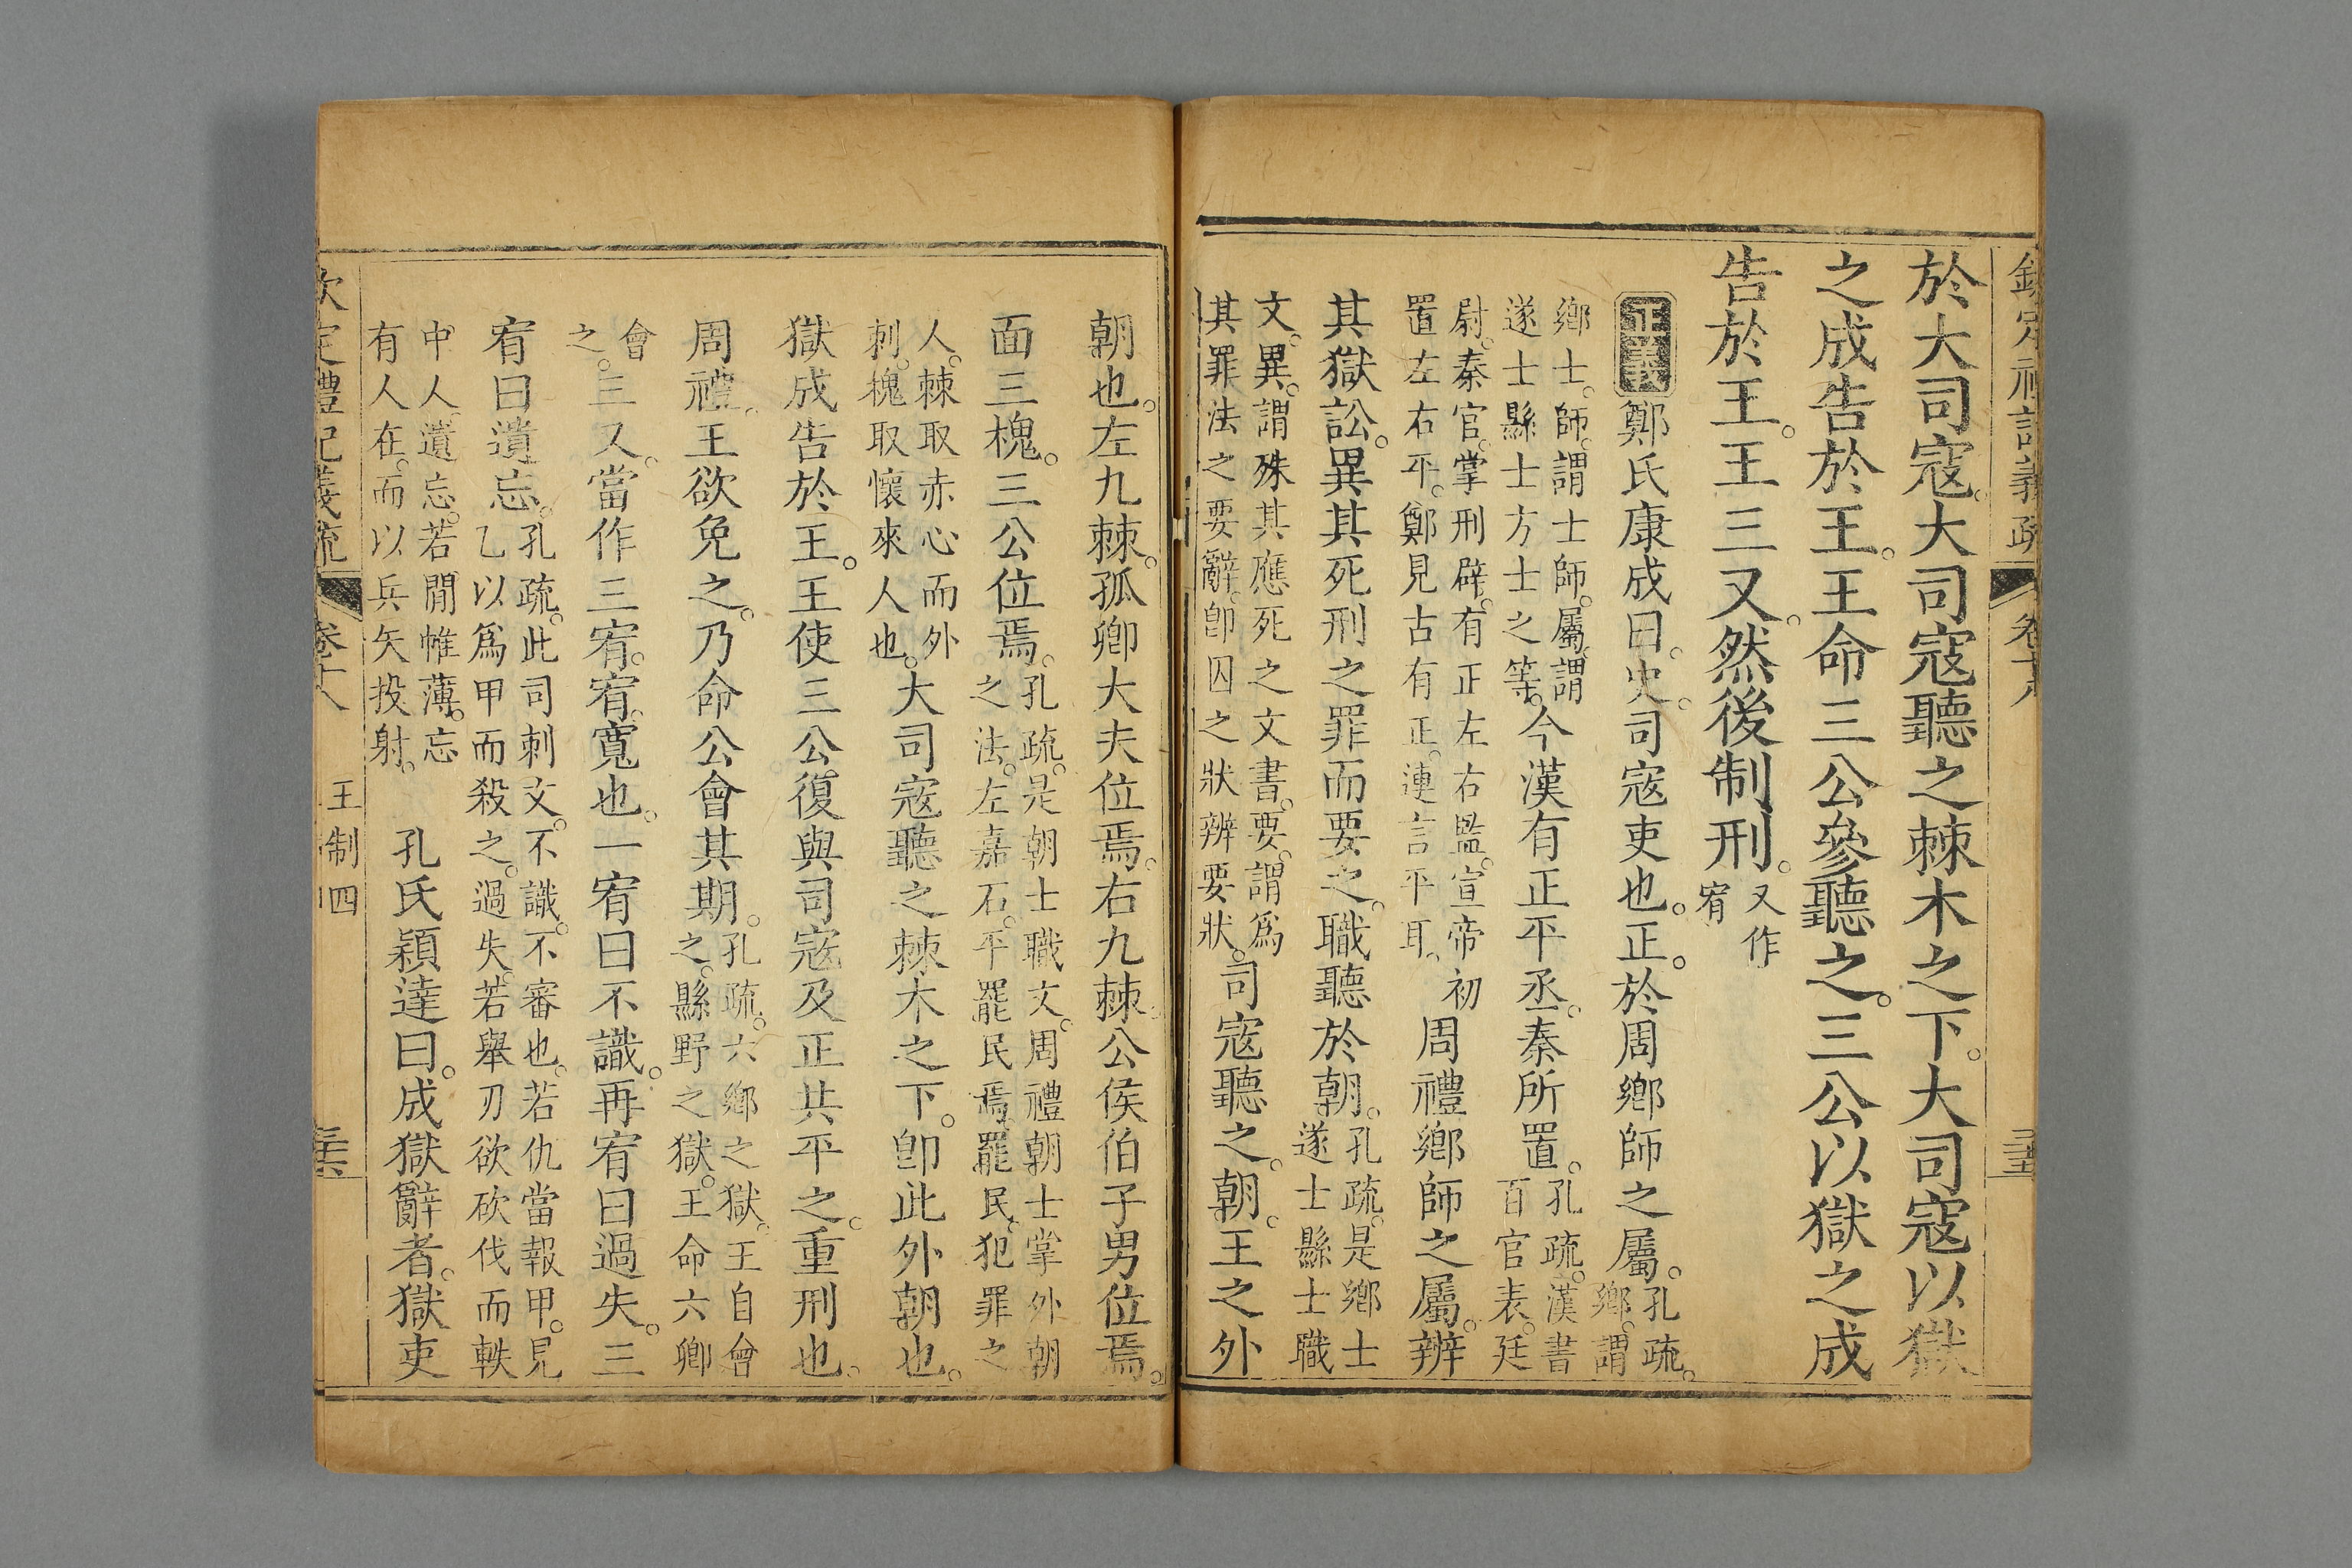 欽定禮記義疏 卷十八 三十五
於大司寇。大司寇聽之棘木之下。大司寇以獄
之成告於王。王命三公參聽之。三公以獄之成
告於王。王三又。然後制刑。又作宥
正義 鄭氏康成曰。史。司寇吏也。正。於周鄉師之屬。孔疏。鄉。謂
鄉士。師。謂士師。屬。謂遂士縣士方士之等。今漢有正平丞。秦所置。孔疏。漢書百官表。廷
尉。秦官。掌刑辟。有正左右監。宣帝初置左右平。鄭見古有正。連言平耳。周禮鄉師之屬。辨
其獄訟。異其死刑之罪而要之。職聽於朝。孔疏。是鄉士遂士縣士職
文。異。謂殊其應死之文書。要。謂爲其罪法之要辭。卽囚之狀辨要狀。司寇聽之。朝。王之外
朝也。左九棘。孤卿大夫位焉。右九棘。公侯伯子男位焉。
面三槐。三公位焉。孔疏。是朝士職文。周禮朝士掌外朝之法。左嘉石。平罷民焉。罷民。犯罪之
人。棘取赤心而外刺。槐取懷來人也。大司寇聽之棘木之下。卽此外朝也。
獄成告於王。王使三公復與司寇及正共平之。重刑也。
周禮。王欲免之。乃命公會其期。孔疏。六鄉之獄。王自會之。縣野之獄。王命六卿
會之。三又。當作三宥。宥。寬也。一宥曰不識。再宥曰過失。三
宥曰遺忘。孔疏。此司刺文。不識。不審也。若仇當報甲。見乙以爲甲而殺之。過失。若舉刃欲砍伐而軼
中人。遺忘。若閒帷薄。忘有人在。而以兵矢投射。孔氏穎達曰。成獄辭者。獄吏
欽定禮記義疏 卷十八 王制四 三十六